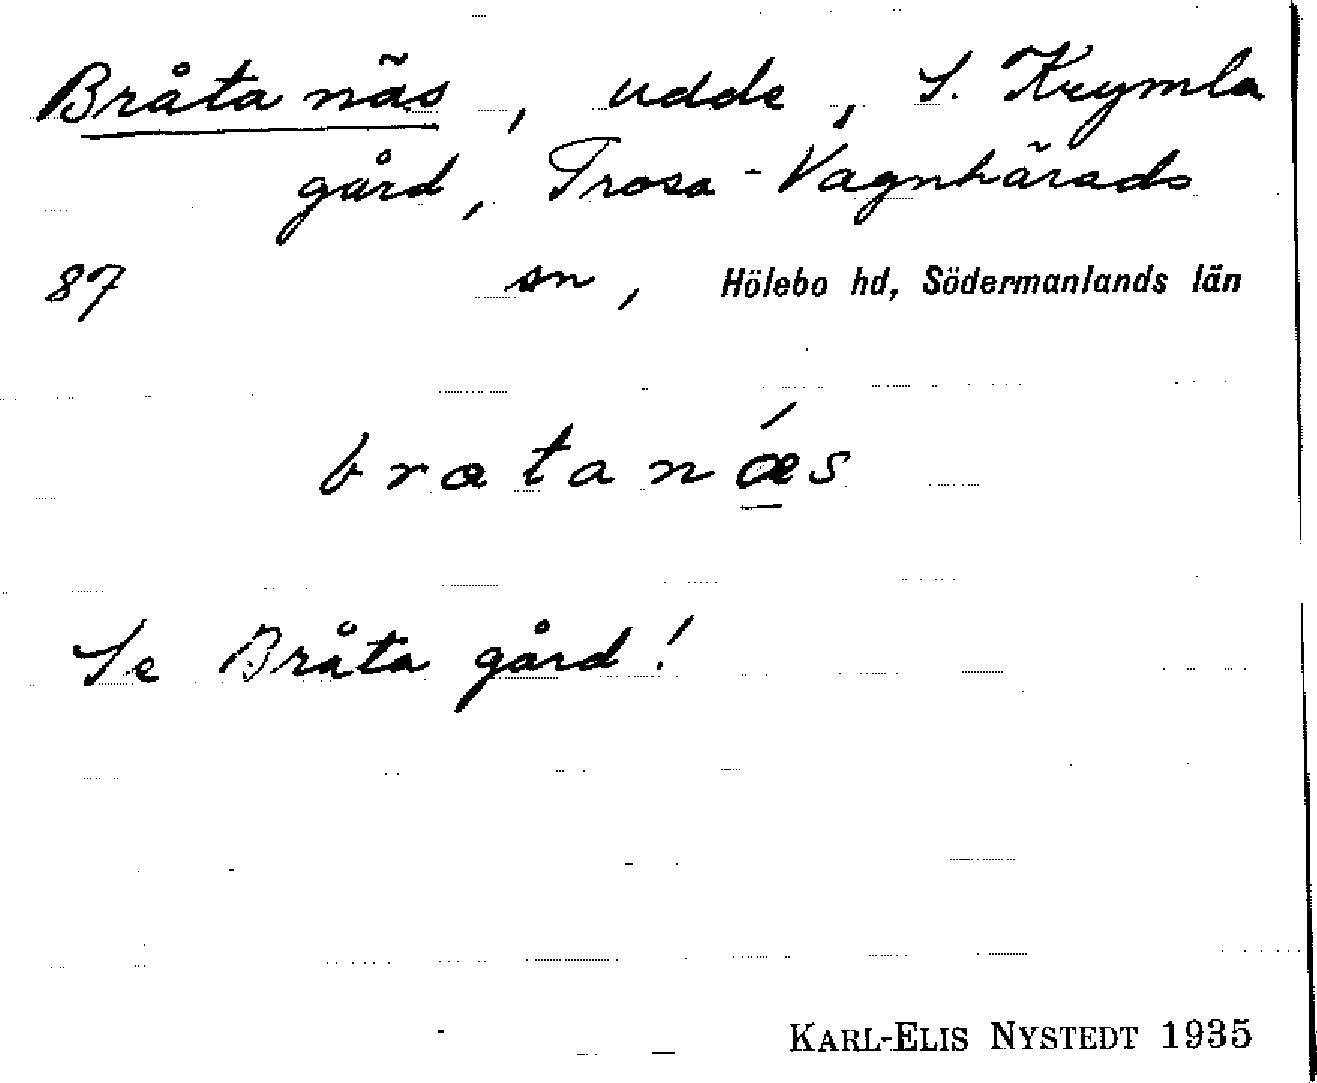 Bråtanäs, udde, S. Krymla
gård, Trosa-Vagnhärads
87 sn, Hölebo hd, Södermanlands län
bratanǽs
Se Bråta gård!
KARL-ELIS NYSTEDT 1935